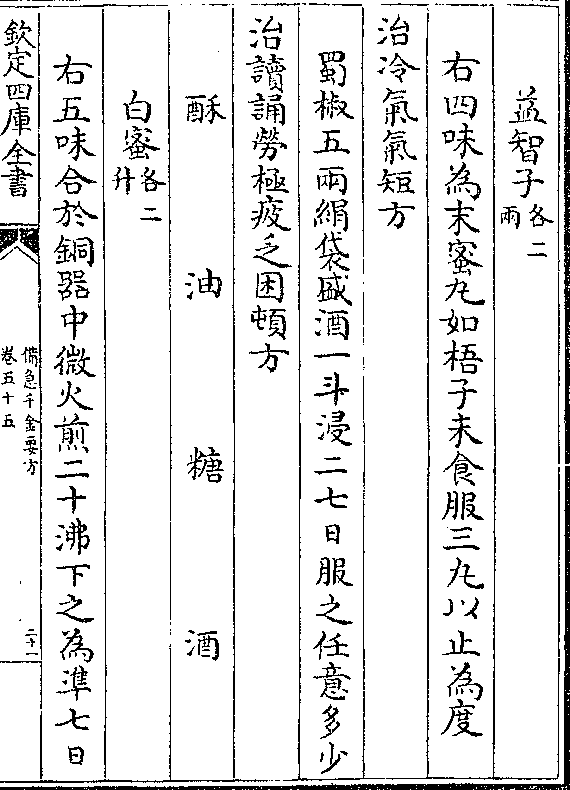 益智子各二兩
右四味為末蜜丸如梧子未食服三丸以止為度
治冷氣氣短方
蜀椒五兩絹袋盛酒一斗浸二七日服之任意多少
治讀誦勞極疲乏困頓方
酥 油 糖 酒
白蜜各二升
右五味合於銅器中微火煎二十沸下之為準七日
欽定四庫全書
備急千金要方
卷五十五
二十一